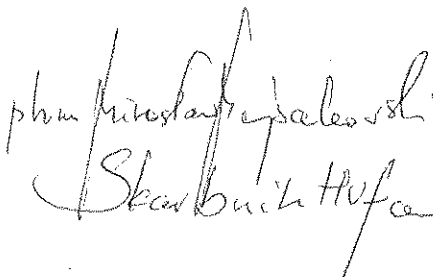 phm Mirosław
Skarbnik Hufca